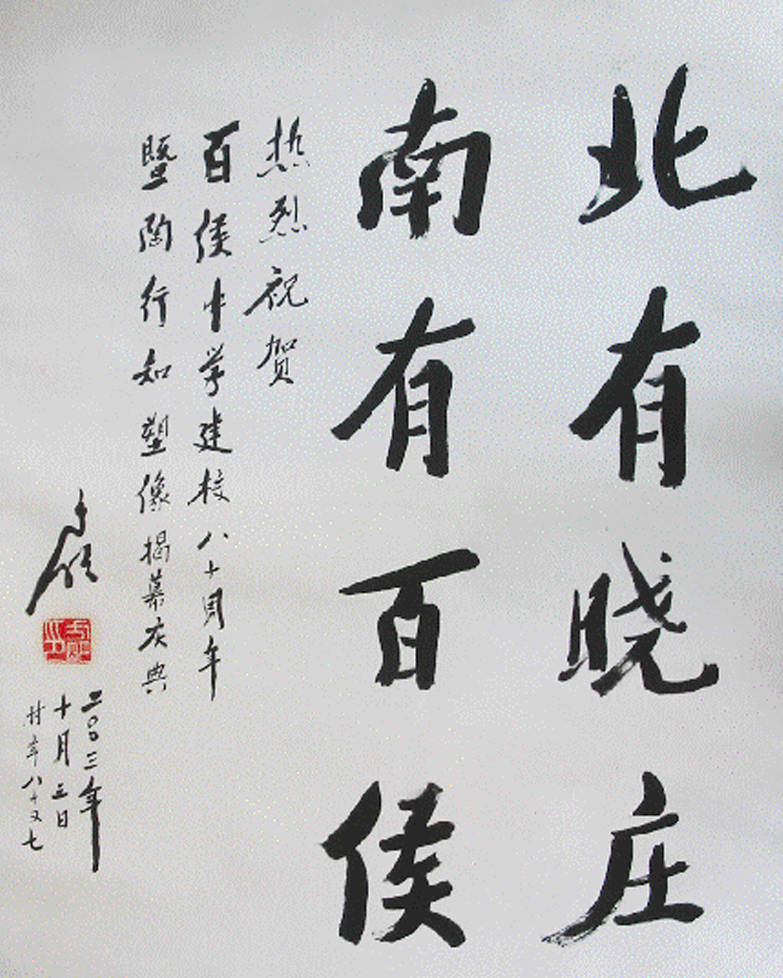 北有晓庄
南有百侯
热烈祝贺
百侯中学建校八十周年
暨陶行知塑像揭幕庆典
二〇〇三年
十月三日
时年八十又七